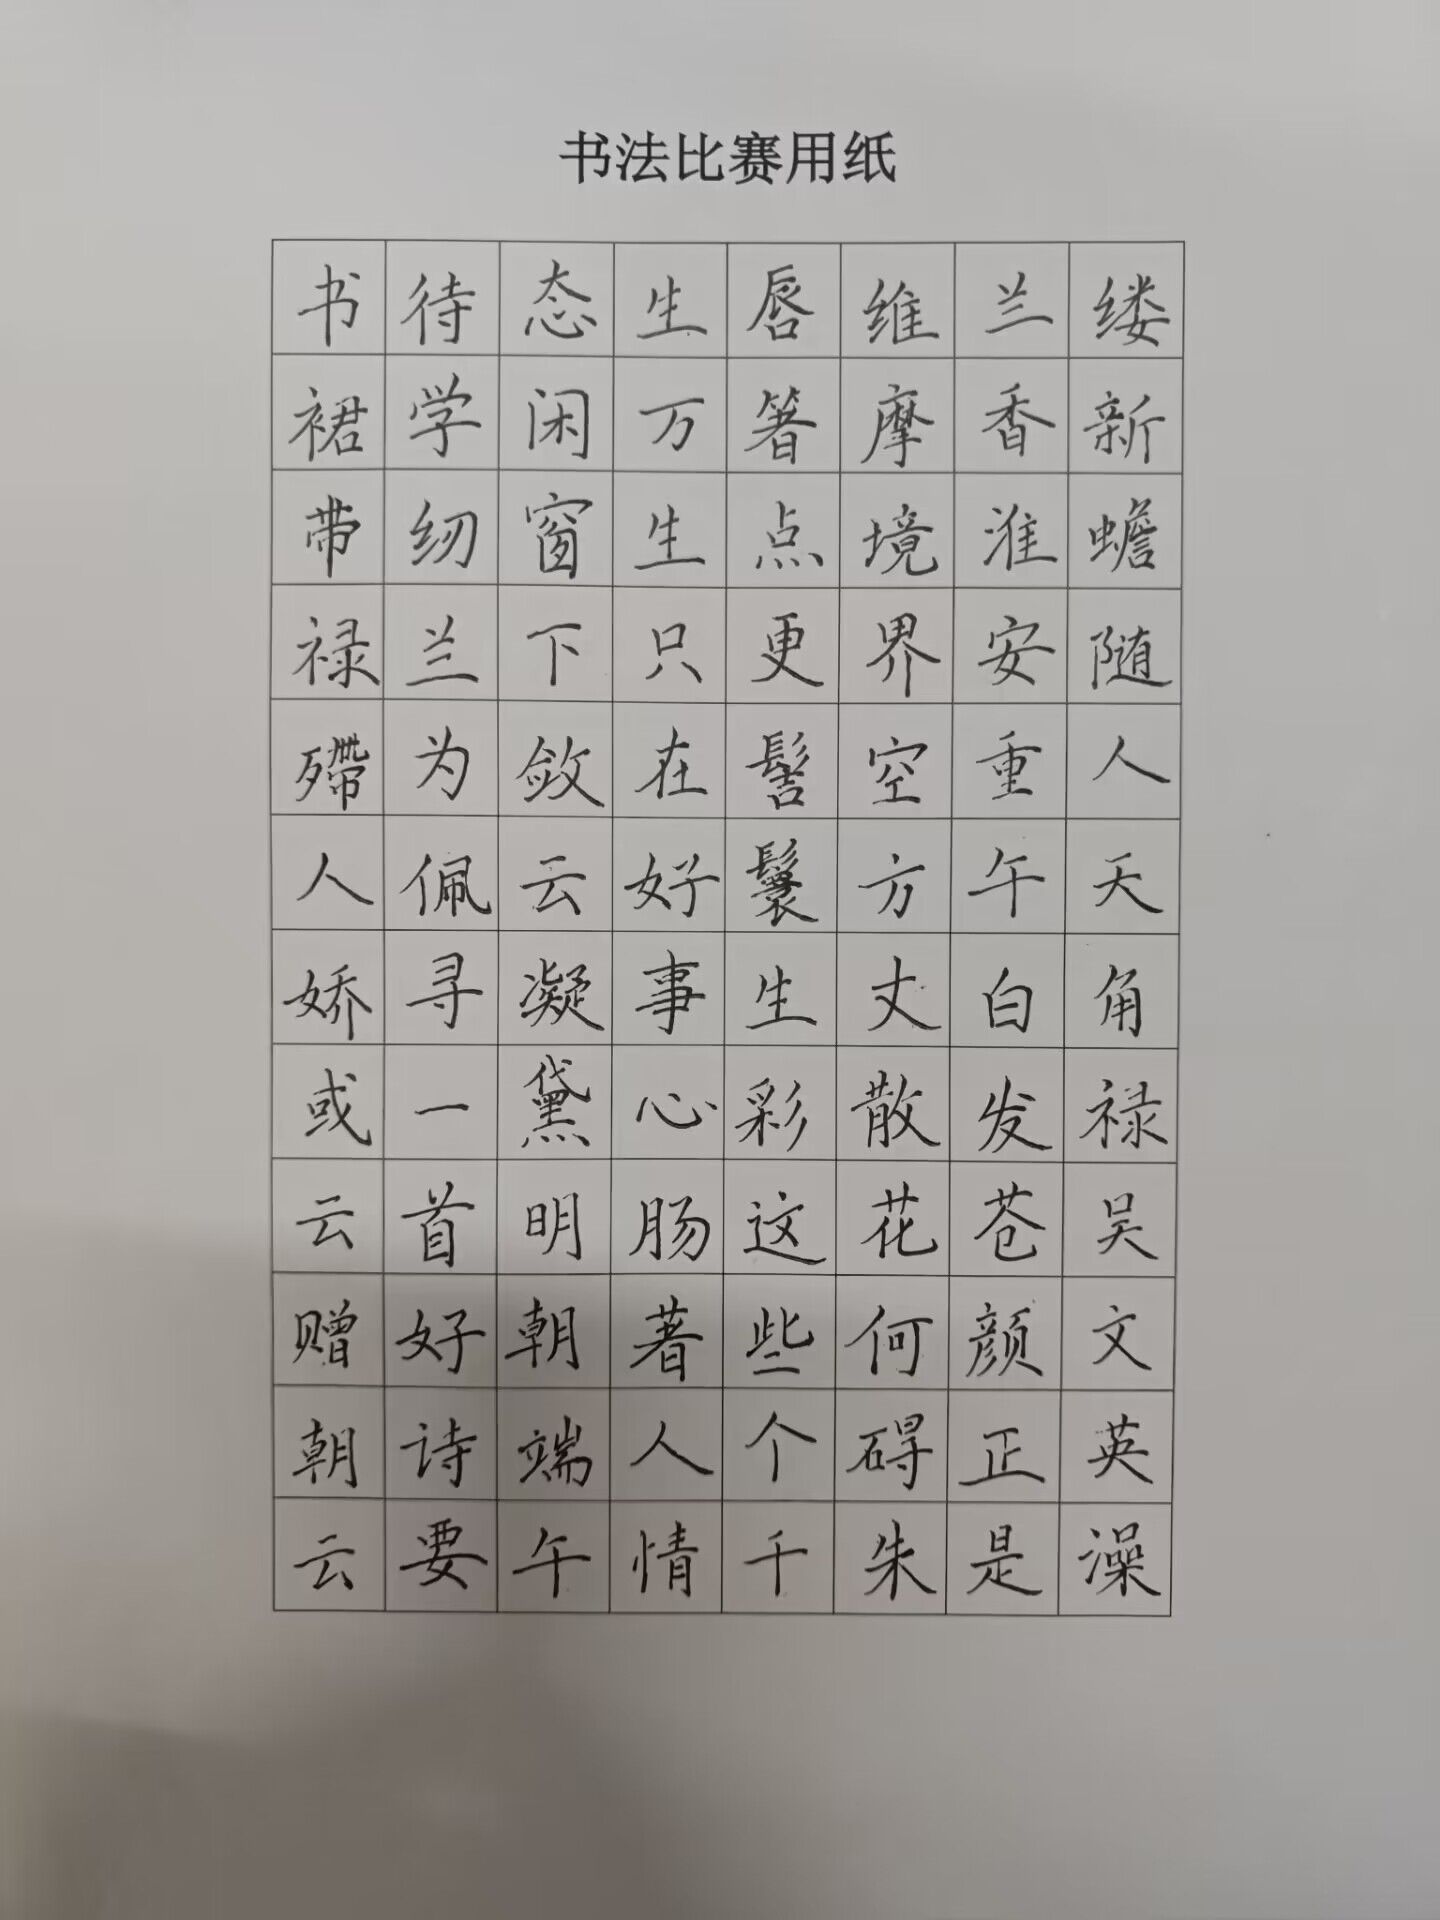 书法比赛用纸
缕新蟾随人天角禄吴文英澡
兰香淮安重午白发苍颜正是
维摩境界空方丈散花何碍朱
唇箸点更髻鬟生彩这些个千
生万生只在好事心肠著人情
态闲窗下敛云凝黛明朝端午
待学纫兰为佩寻一首好诗要
书裙带禄殢人娇或云赠朝云